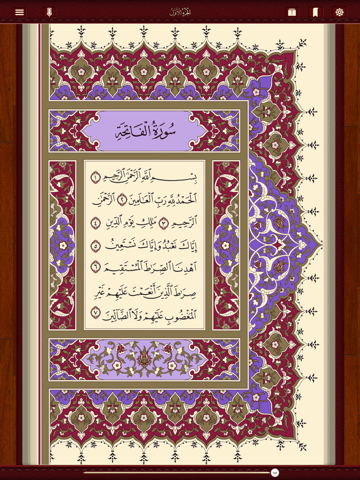 الجزء الأول
سُورَةُ الْفَاتِحَةِ
بِسْمِ اللَّهِ الرَّحْمَٰنِ الرَّحِيمِ ١
الْحَمْدُ لِلَّهِ رَبِّ الْعَالَمِينَ ٢ الرَّحْمَٰنِ
الرَّحِيمِ ٣ مَالِكِ يَوْمِ الدِّينِ ٤
إِيَّاكَ نَعْبُدُ وَإِيَّاكَ نَسْتَعِينُ ٥
اهْدِنَا الصِّرَاطَ الْمُسْتَقِيمَ ٦
صِرَاطَ الَّذِينَ أَنْعَمْتَ عَلَيْهِمْ غَيْرِ
الْمَغْضُوبِ عَلَيْهِمْ وَلَا الضَّالِّينَ ٧